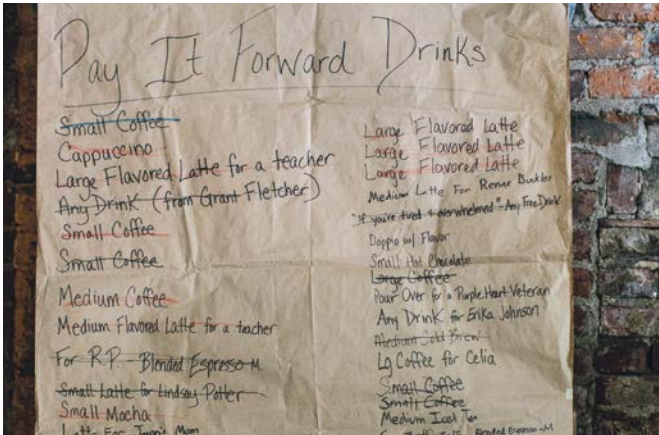 Pay It Forward Drinks
Small Coffee
Cappuccino
Large Flavored Latte for a teacher
Any Drink (from Grant Fletcher)
Small Coffee
Small Coffee
Medium Coffee
Medium Flavored Latte for a teacher
For R.P. Blended Espresso M.
Small Latte for Lindsay Potter
Small Mocha
Latte For Mom
Large Flavored Latte
Large Flavored Latte
Large Flavored Latte
Medium Latte For Renae Buckles
"If you're tired + overwhelmed" - Any Free Drink
Doppio w/ Flavor
Small Hot Chocolate
Large Coffee
Pour Over for a Purple Heart Veteran
Any Drink for Erika Johnson
Medium Cold Brew
Lg Coffee for Celia
Small Coffee
Small Coffee
Medium Iced Tea
Blended Espresso-M